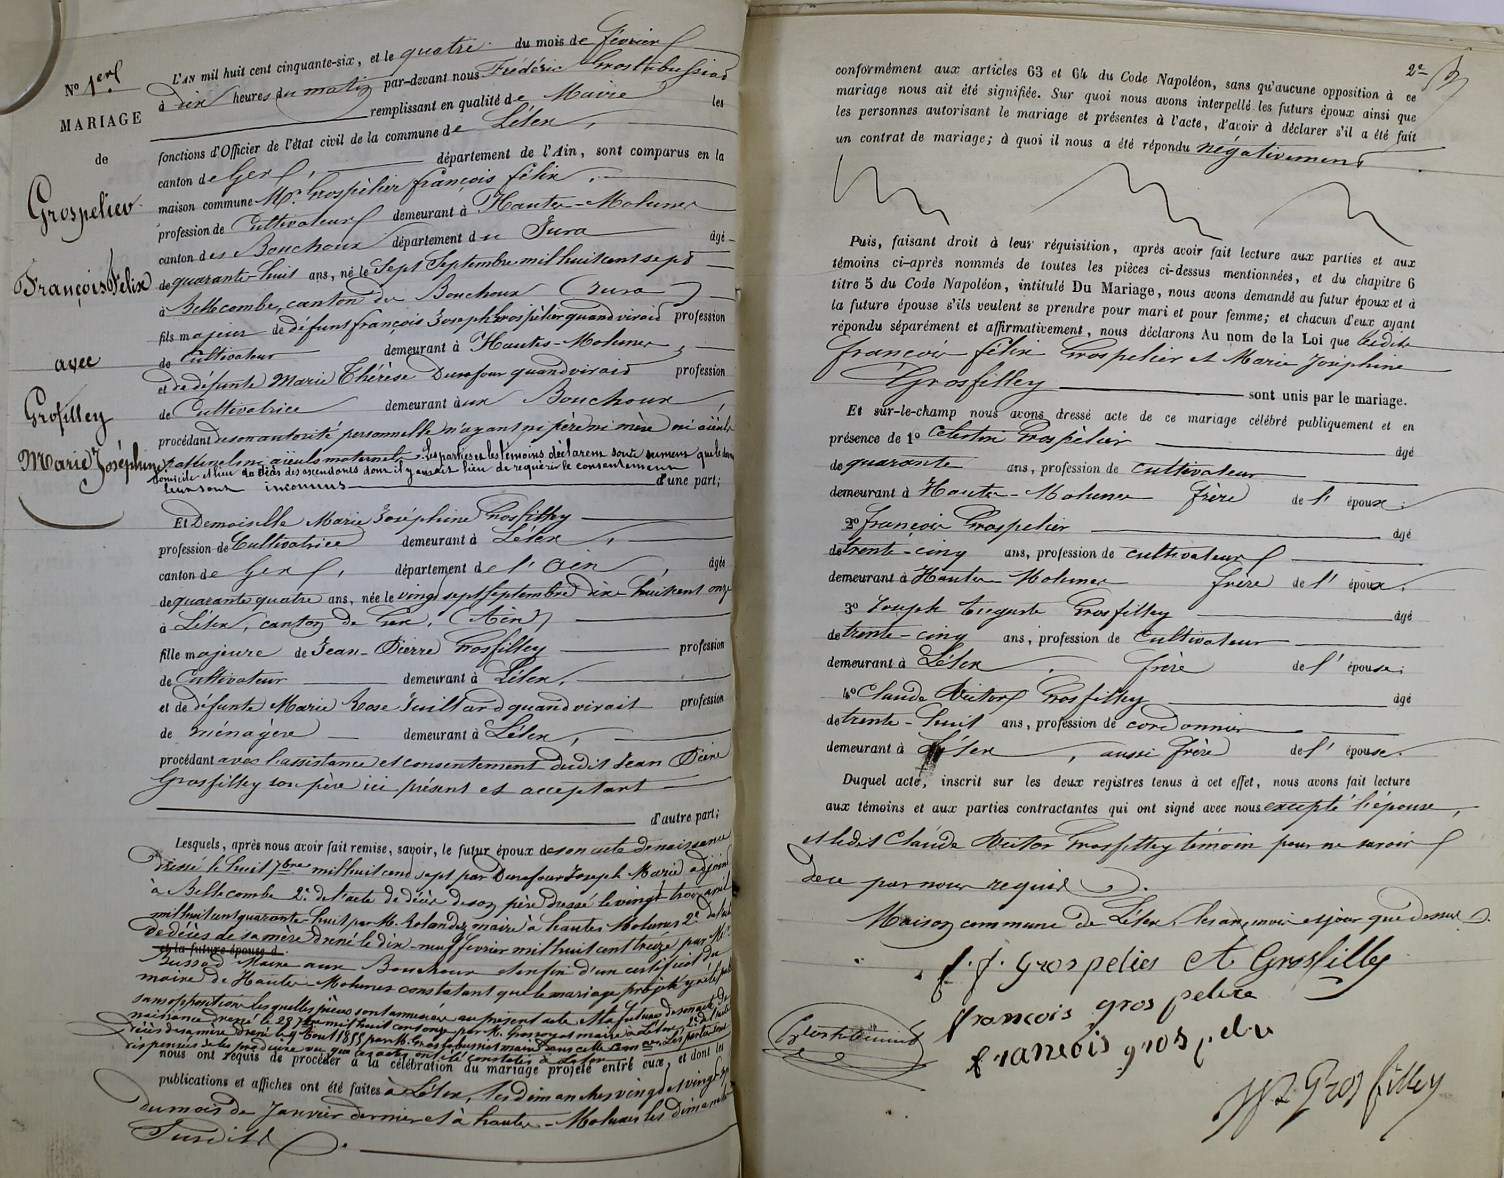 N° 1er
MARIAGE
de
Grospelier
François Félix
avec
Grosfilley
Marie Joséphine
L'AN mil huit cent cinquante-six, et le quatre du mois de février
à dix heures du matin par-devant nous Frédéric Grostabussiat
remplissant en qualité de Maire les
fonctions d'Officier de l'état civil de la commune de Lélex,
canton de Gex, département de l'Ain, sont comparus en la
maison commune Mr. Grospélier françois félix,
profession de Cultivateur demeurant à Hautes-Molunes
canton des Bouchoux département du Jura âgé
de quarante-huit ans, né le Sept Septembre mil huit cent sept
à Bellecombe, canton des Bouchoux (Jura)
fils majeur de défunt françois Joseph Grospélier quand vivait profession
de Cultivateur demeurant à Hautes-Molunes,
et de défunte Marie Thérèse Durafour quand vivait profession
de Cultivatrice demeurant aux Bouchoux,
procédant de son autorité personnelle n'ayant ni père ni mère ni aïeuls
paternels ni aïeuls maternels. Les parties et les témoins déclarent sous serment que le dernier
domicile et lieu de décès des ascendants dont il y aurait lieu de requérir le consentement
leur sont inconnus d'une part;
Et Demoiselle Marie Joséphine Grosfilley
profession de Cultivatrice demeurant à Lélex,
canton de Gex, département de l'Ain, âgée
de quarante quatre ans, née le vingt sept Septembre dix huit cent onze
à Lélex, canton de Gex, (Ain)
fille majeure de Jean-Pierre Grosfilley profession
de Cultivateur demeurant à Lélex,
et de défunte Marie Rose Juillard quand vivait profession
de ménagère demeurant à Lélex,
procédant avec l'assistance et consentement dudit Jean Pierre
Grosfilley son père ici présent et acceptant
d'autre part;
Lesquels, après nous avoir fait remise, savoir, le futur époux de son acte de naissance
dressé le huit 7bre mil huit cent sept par Durafour Joseph Marie adjoint
à Bellecombe 2° de l'acte de décès de son père dressé le vingt trois avril
mil huit cent quarante huit par M. Rolandez maire à hautes Molunes 2° de l'acte
de décès de sa mère dressé le dix neuf février mil huit cent treize par Mr.
et la future épouse d
Bussod Maire aux Bouchoux et enfin d'un certificat du
maire de Hautes-Molunes constatant que le mariage projeté y a été publié
sans opposition lesquelles pièces sont annexées au présent acte Et la future de son acte de
naissance dressé le 28 7bre mil huit cent onze par M. Grosgurin maire à Lélex, 2° de l'acte de
décès de sa mère dressé le 9 Août 1855 par M. Grostabussiat maire
dispensées de les produire vu que ces actes ont été constatés à Lélex
nous ont requis de procéder à la célébration du mariage projeté entre eux, et dont les
publications et affiches ont été faites à Lélex, les dimanches vingt et vingt sept
du mois de Janvier dernier et à hautes-Molunes les dimanches
Susdits.
2e
conformément aux articles 63 et 64 du Code Napoléon, sans qu'aucune opposition à ce
mariage nous ait été signifiée. Sur quoi nous avons interpellé les futurs époux ainsi que
les personnes autorisant le mariage et présentes à l'acte, d'avoir à déclarer s'il a été fait
un contrat de mariage; à quoi il nous a été répondu négativement
Puis, faisant droit à leur réquisition, après avoir fait lecture aux parties et aux
témoins ci-après nommés de toutes les pièces ci-dessus mentionnées, et du chapitre 6
titre 5 du Code Napoléon, intitulé Du Mariage, nous avons demandé au futur époux et à
la future épouse s'ils veulent se prendre pour mari et pour femme; et chacun d'eux ayant
répondu séparément et affirmativement, nous déclarons Au nom de la Loi que lesdits
françois félix Grospelier et Marie Joséphine
Grosfilley sont unis par le mariage.
Et sur-le-champ nous avons dressé acte de ce mariage célébré publiquement et en
présence de 1° Célestin Grospélier âgé
de quarante ans, profession de cultivateur
demeurant à Hautes-Molunes frère de l'époux;
2° françois Grospelier âgé
de trente-cinq ans, profession de cultivateur
demeurant à Hautes Molunes frère de l'époux.
3° Joseph Auguste Grosfilley âgé
de trente-cinq ans, profession de Cultivateur
demeurant à Lélex, frère de l'épouse;
4° Claude Victor Grosfilley âgé
de trente-huit ans, profession de cordonnier
demeurant à Lélex, aussi frère de l'épouse.
Duquel acte, inscrit sur les deux registres tenus à cet effet, nous avons fait lecture
aux témoins et aux parties contractantes qui ont signé avec nous excepté l'épouse,
et ledit Claude Victor Grosfilley témoin pour ne savoir
de ce par nous requis.
Maison commune de Lélex, les an, mois et jour que dessus.
f. f. Grospelier Ct Grosfilley
françois gros pelire
francois gros pelre
JA Gros filley